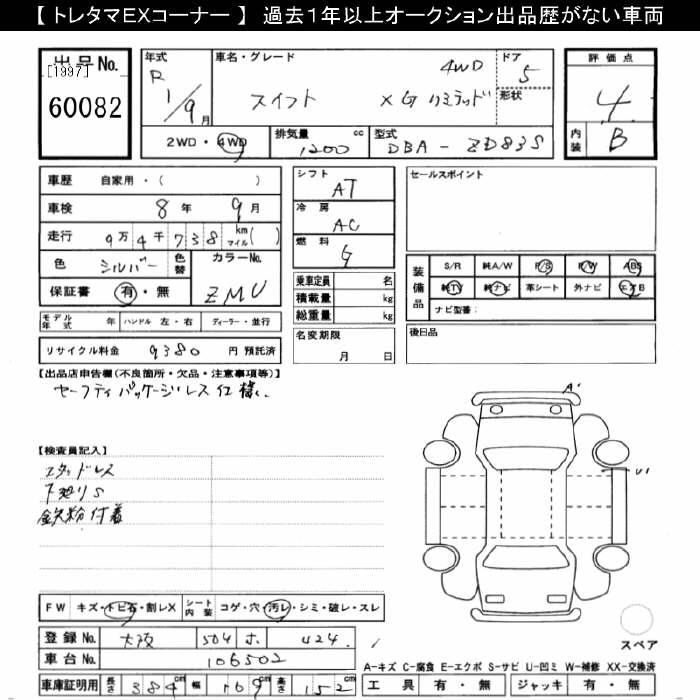 【 トレタマEXコーナー 】 過去１年以上オークション出品歴がない車両
出品No.
[1997]
60082
年式 R 1/9月
車名・グレード スイフト XG リミテッド 4WD
ドア 5
形状
2WD・4WD
排気量 1200 cc
型式 DBA - ZD83S
評価点 4
内装 B
車歴 自家用・( )
車検 8年 9月
走行 9万4千738 km マイル( )
色 シルバー 色替
カラーNo. ZMU
保証書 有・無
シフト AT
冷房 AC
燃料 G
乗車定員 名
積載量 kg
総重量 kg
名変期限 月 日
セールスポイント
装備品 S/R 純A/W P/S P/W ABS
純TV 純ナビ 革シート 外ナビ エアB
ナビ型番：
後日品
モデル年式 年 ハンドル 左・右 ディーラー・並行
リサイクル料金 9380 円 預託済
【出品店申告欄(不良箇所・欠品・注意事項等)】
セーフティパッケージレス仕様
【検査員記入】
スタッドレス
下廻りS
鉄粉付着
A'
U1
FW キズ・トビ石・割レX シート内装 コゲ・穴・汚レ・シミ・破レ・スレ
登録No. 大阪 504 ホ 424
車台No. 106502
車庫証明用 長さ 384cm 幅 169cm 高さ 152cm
スペア
A-キズ C-腐食 E-エクボ S-サビ U-凹ミ W-補修 XX-交換済
工具 有・無 ジャッキ 有・無